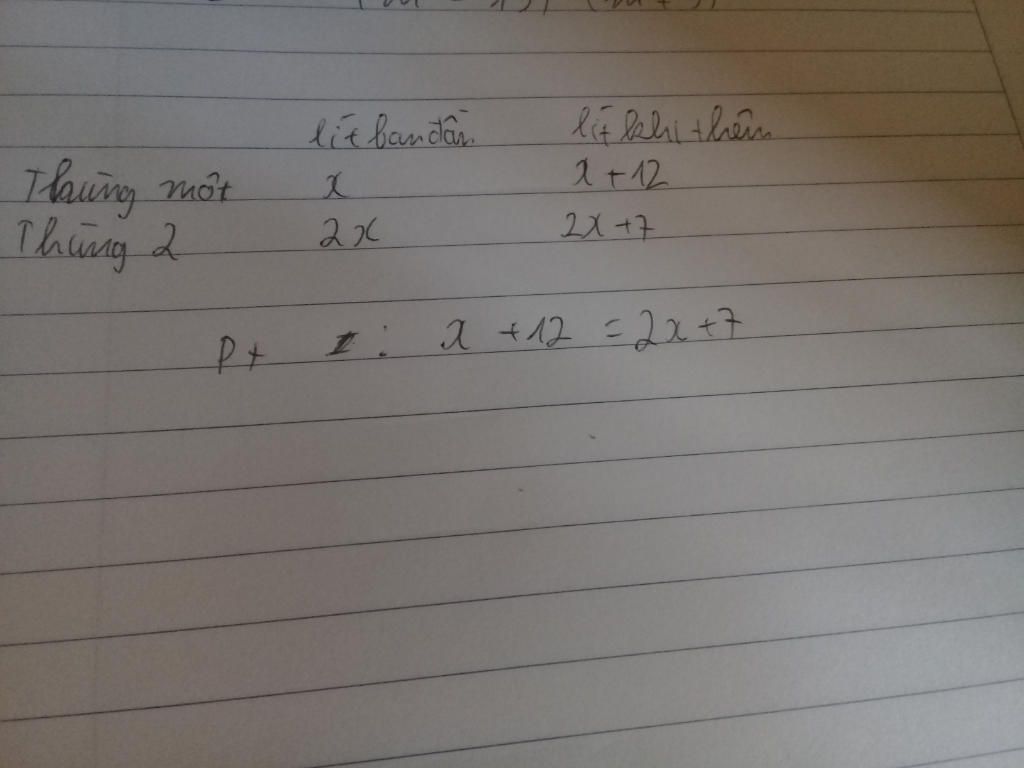 lít ban đầu lít khi thêm
Thùng một x x + 12
Thùng 2 2x 2x + 7
Pt : x + 12 = 2x + 7